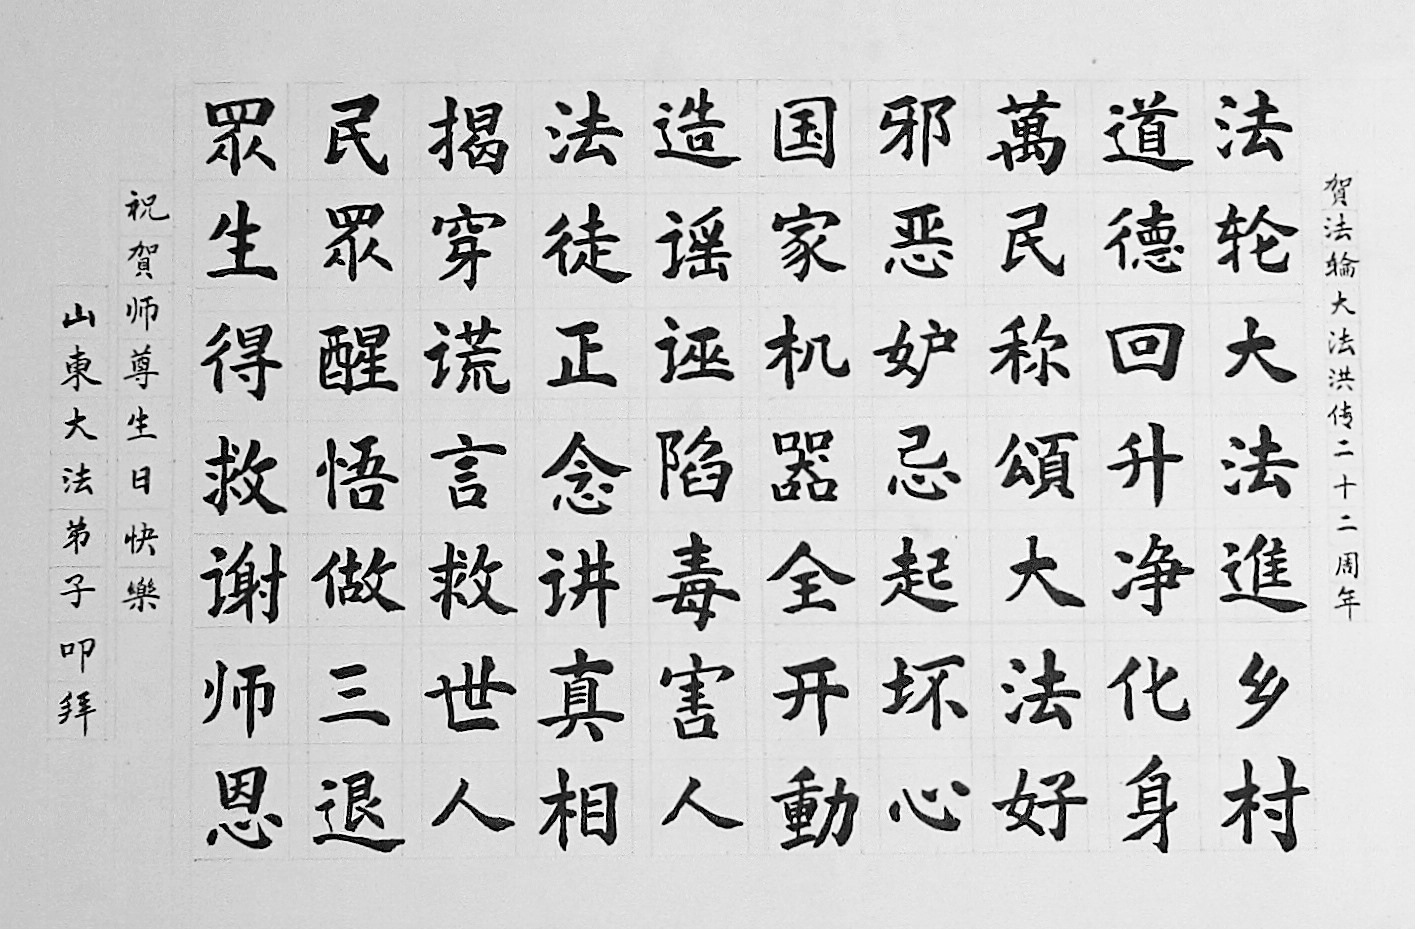 賀法輪大法洪传二十二周年
法轮大法進乡村
道德回升净化身
萬民称頌大法好
邪恶妒忌起坏心
国家机器全开動
造谣诬陷毒害人
法徒正念讲真相
揭穿谎言救世人
民眾醒悟做三退
眾生得救谢师恩
祝賀师尊生日快樂
山東大法弟子叩拜